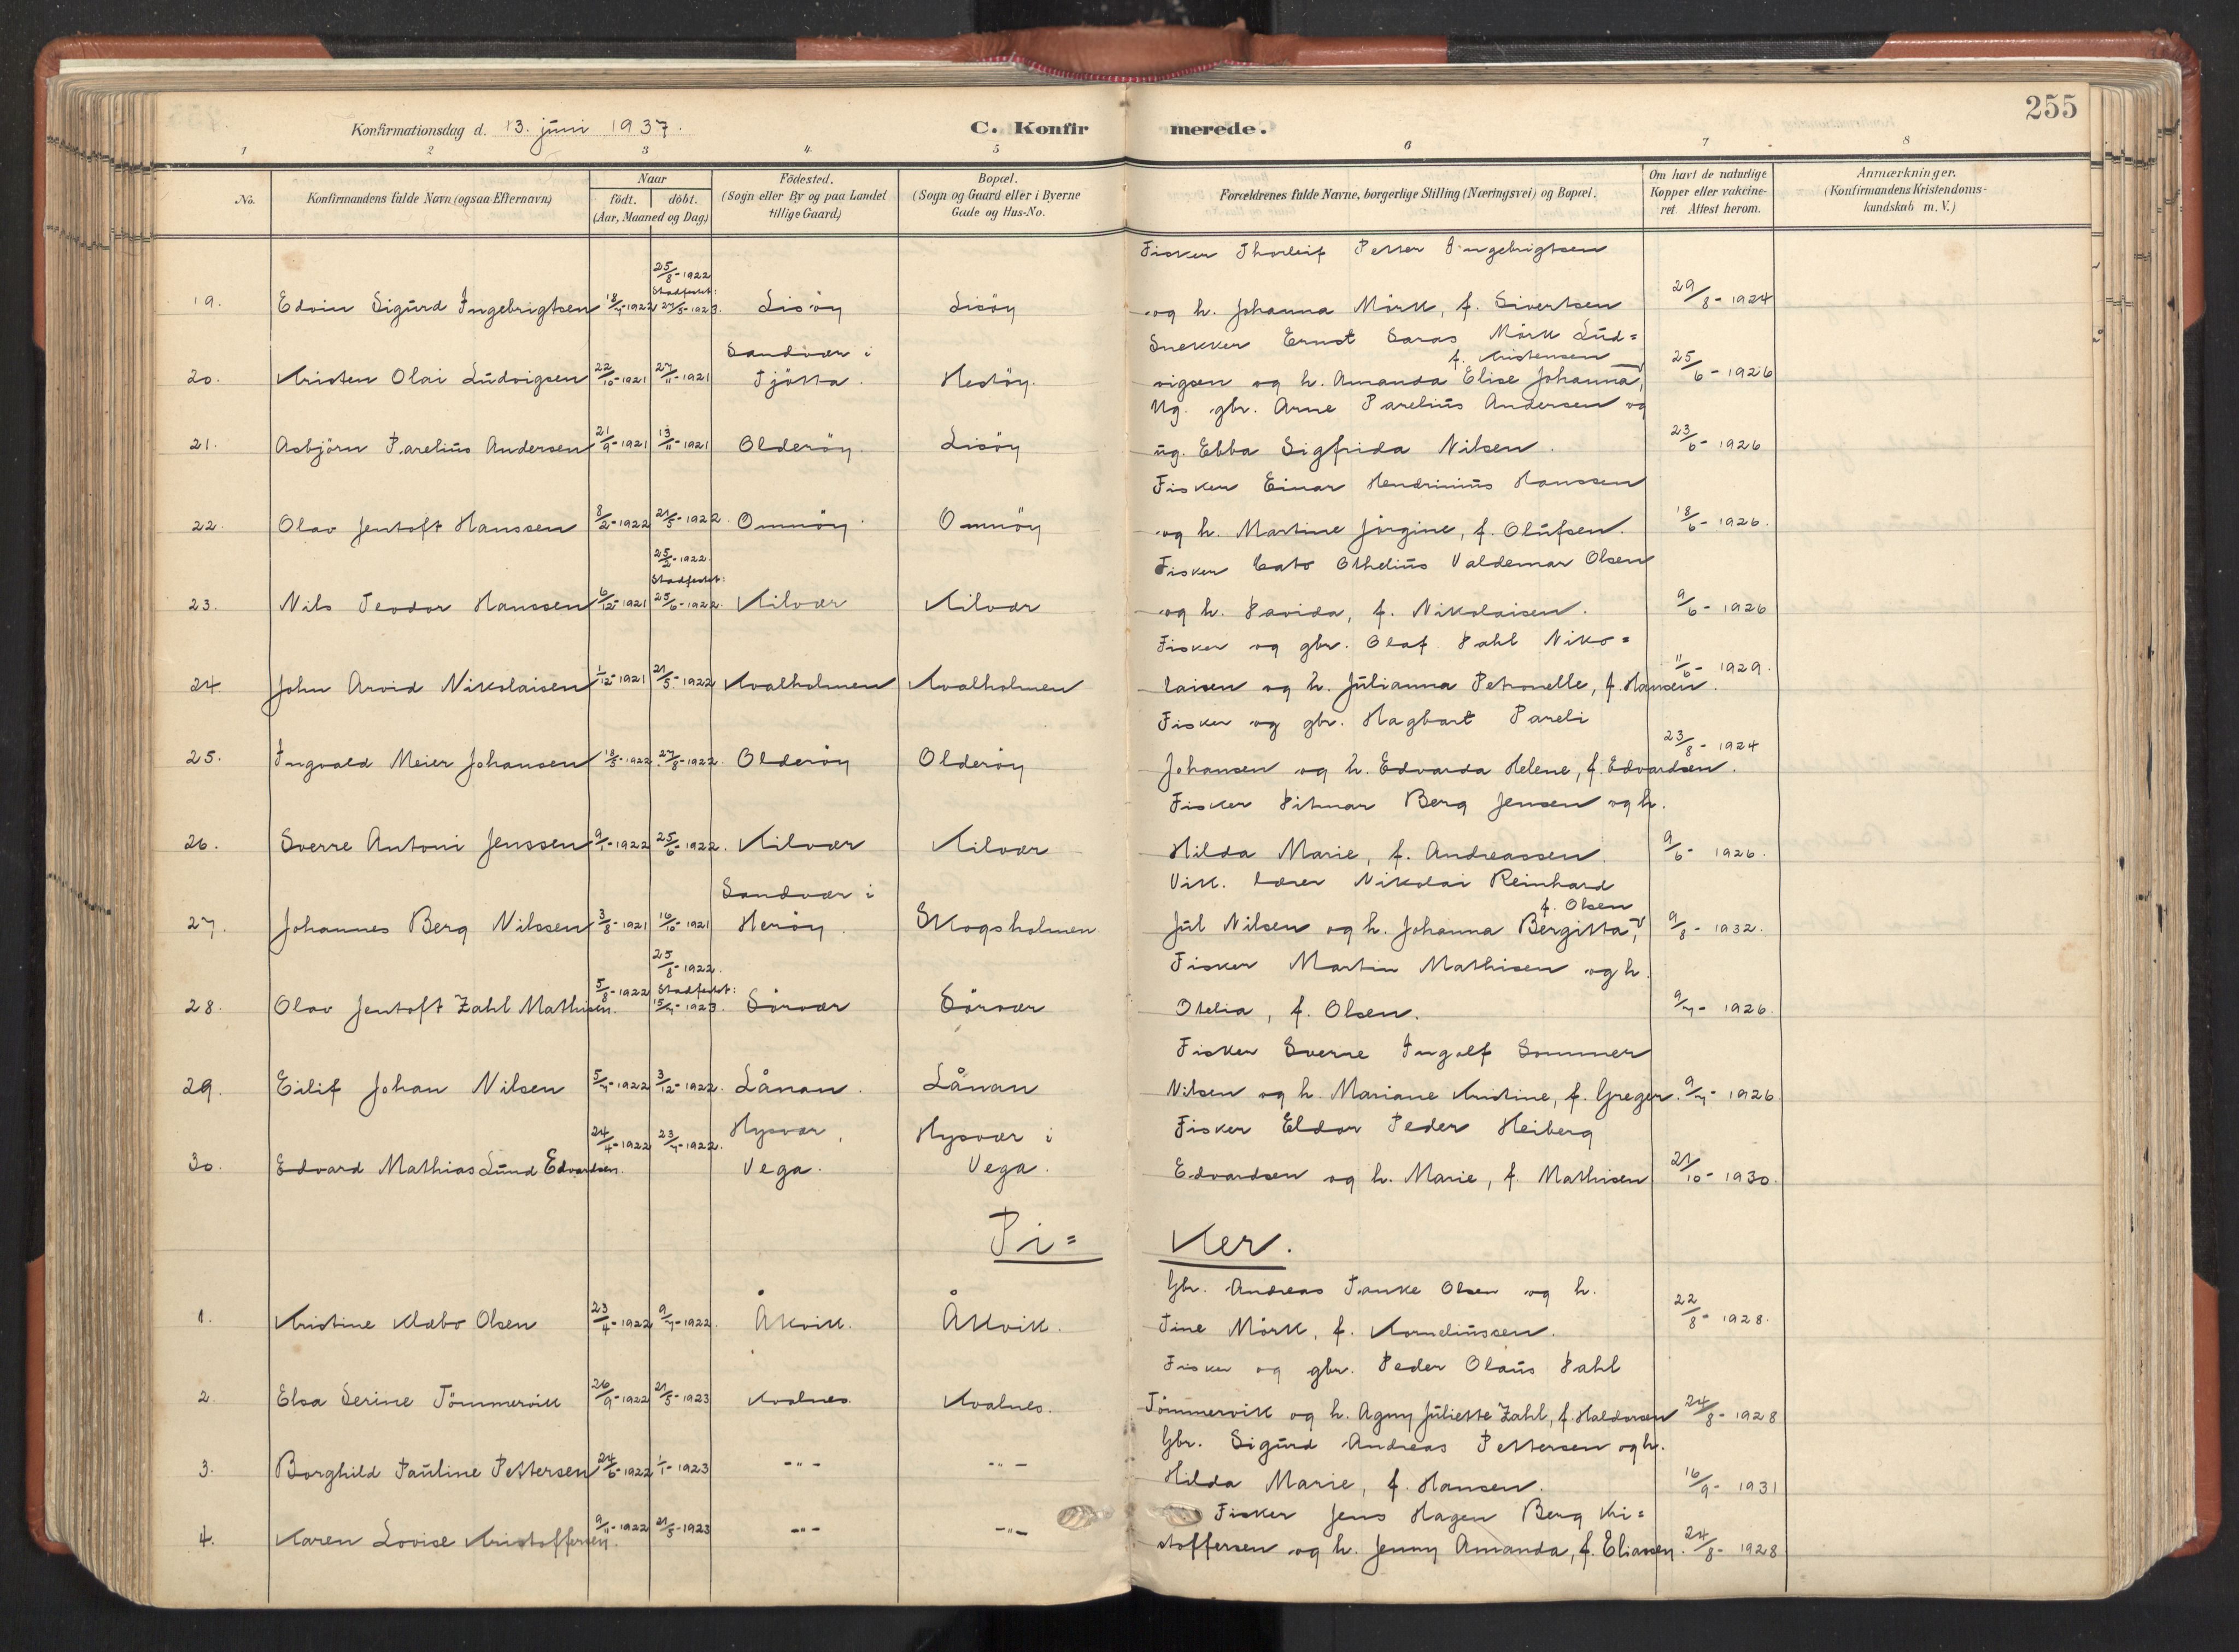 255
Konfirmationsdag d. 13. juni 1937.
C. Konfirmerede.
1 2 3 4 5 6 7 8
No.
Konfirmandens fulde Navn (ogsaa Efternavn)
Naar
födt. döbt.
(Aar, Maaned og Dag)
Födested.
(Sogn eller By og paa Landet
tillige Gaard)
Bopæl.
(Sogn og Gaard eller i Byerne
Gade og Hus-No.
Forældrenes fulde Navne, borgerlige Stilling (Næringsvei) og Bopæl.
Om havt de naturlige
Kopper eller vakcine-
ret. Attest herom.
Anmærkninger.
(Konfirmandens Kristendoms-
kundskab m. V.)
Fisker Thorleif Petter Ingebrigtsen
25/8-1922
Stadfestet:
19. Edvin Sigurd Ingebrigtsen 18/7-1922 27/5-1923. Lisöy Lisöy og h. Johanna Mörk, f. Sivertsen 29/8-1924
Snekker Ernst Saras Mörk Lud=
Sandvær i f. Kristensen
20. Kristen Olai Ludvigsen 22/10-1921 27/11-1921 Tjötta. Hestöy. vigsen og h. Amanda Elise Johanna, 25/6-1926
Ug. gbr. Arne Parelius Andersen og
21. Asbjörn Parelius Andersen 21/9-1921 13/11-1921 Olderöy. Lisöy ug. Ebba Sigfrida Nilsen. 23/6-1926
Fisker Einar Hendrinius Hanssen
22. Olav Jentoft Hanssen 8/2-1922 21/5-1922. Omnöy. Omnöy og h. Martine Jörgine, f. Olufsen. 18/6-1926.
25/2-1922.
Stadfestet:
Fisker Cato Othelius Valdemar Olsen
23. Nils Teodor Hanssen 6/12-1921 25/6-1922. Kilvær Kilvær og h. Davida, f. Nikolaisen. 9/6-1926
Fisker og gbr. Olaf Dahl Niko=
24 John Arvid Nikolaisen 1/12-1921 21/5-1922 Kvalholmen Kvalholmen laisen og h. Julianna Petronelle, f. Hansen. 11/6-1929.
Fisker og gbr. Hagbart Pareli
25. Ingvald Meier Johansen 18/5-1922 27/8-1922. Olderöy Olderöy Johansen og h. Edvarda Helene, f. Edvardsen. 23/8-1924
Fisker Ditmar Berg Jensen og h.
26. Sverre Antoni Jenssen 9/1-1922 25/6-1922. Kilvær Kilvær Hilda Marie, f. Andreassen. 9/6-1926.
Vik. lærer Nikolai Reinhard
Sandvær i f. Olsen
27. Johannes Berg Nilssen 3/8-1921 16/10-1921 Heröy. Skogsholmen. Jul Nilsen og h. Johanna Bergitta, 9/8-1932.
Fisker Martin Mathisen og h.
25/8-1922.
Stadfestet:
28. Olav Jentoft Zahl Mathisen. 5/8-1922 15/7-1923. Sörvær Sörvær Otelia, f. Olsen. 9/7-1926.
Fisker Sverre Ingolf Sommer
29. Eilif Johan Nilsen 5/7-1922 3/12-1922. Lånan. Lånan Nilsen og h. Mariane Kristine, f. Greger. 9/7-1926
Fisker Eldor Peder Heiberg
Hysvær, Hysvær i
30. Edvard Mathias Lund Edvardsen. 24/4-1922 23/7-1922. Vega. Vega. Edvardsen og h. Marie, f. Mathisen 21/10-1930.
Pi= ker.
Gbr. Andreas Tanke Olsen og h.
1. Kristine Klæbo Olsen 23/4-1922 9/7-1922. Åkvik. Åkvik. Tine Mörk, f. Korneliussen. 22/8-1928.
Fisker og gbr. Peder Olaus Dahl
2. Elsa Serine Tömmervik 26/9-1922 21/5-1923 Kvalnes. Kvalnes. Tömmervik og h. Agny Juliette Zahl, f. Haldorsen 24/8-1928
Gbr. Sigurd Andreas Pettersen og h.
3. Borghild Pauline Pettersen 24/6-1922 1/1-1923 -"- -"- Hilda Marie, f. Hansen. 16/9-1931
Fisker Jens Hagen Berg Kri=
4. Karen Lovise Kristoffersen. 9/11-1922 21/5-1923 -"- -"- stoffersen og h. Jenny Amanda, f. Eliassen. 24/8-1928